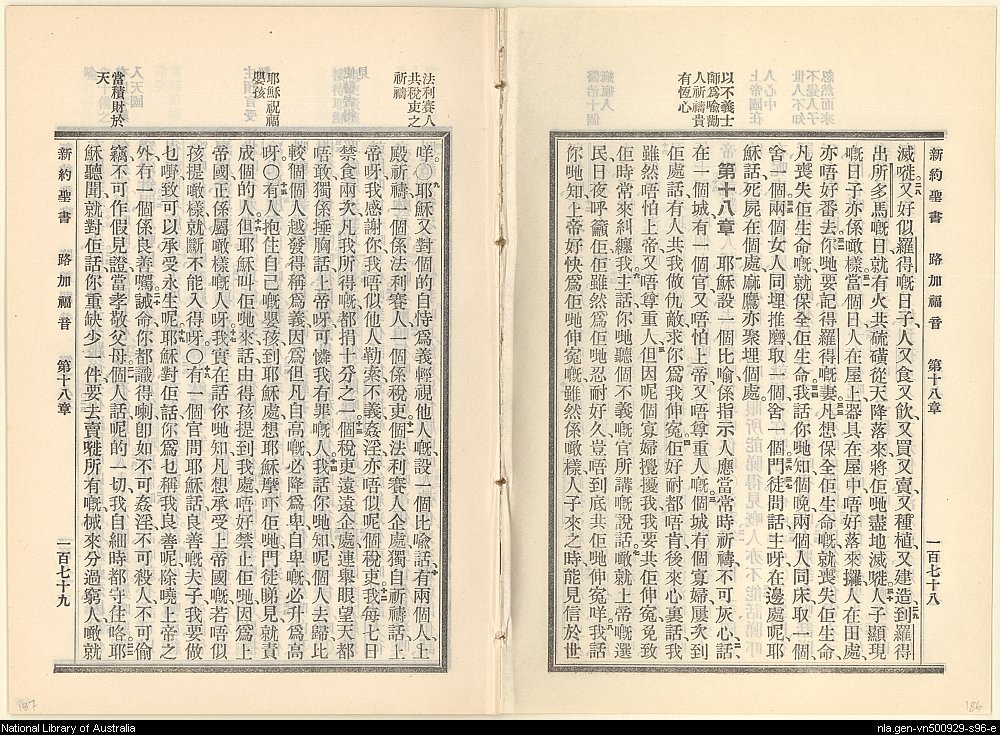 以不義士
師為喩勸
人祈禱貴
有恆心
新約聖書 路加福音 第十八章 一百七十八
滅嘥又好似羅得嘅日子人又食又飲又買又賣又種植又建造到羅得
出所多馬嘅日就有火共硫磺從天降落來將佢哋盡地滅嘥人子顯現
嘅日子亦係噉樣當個日人在屋上器具在屋中唔好落來攞人在田處
亦唔好番去你哋要記得羅得嘅妻凡想保全佢生命嘅就喪失佢生命
凡喪失佢生命嘅就保全佢生命我話你哋知個晚兩個人同床取一個
舍一個兩個女人同埋推磨取一個舍一個門徒問話主呀在邊處呢耶
穌話死屍在個處麻鷹亦聚埋個處
第十八章 耶穌設一個比喩係指示人應當常時祈禱不可灰心話
在一個城有一個官又唔怕上帝又唔尊重人嘅個城有個寡婦屢次到
佢處話有人共我做仇敵求你為我伸寃佢好耐都唔肯後來心裏話我
雖然唔怕上帝又唔尊重人但因呢個寡婦攪擾我我要共佢伸寃免致
佢時常來糾纏我主話你哋聽個不義嘅官所講嘅說話噉就上帝嘅選
民日夜呼籲佢佢雖然為佢哋忍耐好久豈唔到底共佢哋伸寃咩我話
你哋知上帝好快為佢哋伸寃嘅雖然係噉樣人子來之時能見信於世
法利賽人
共稅吏之
祈禱
耶穌祝福
嬰孩
當積財於
天
咩〇耶穌又對個的自恃為義輕視他人嘅設一個比喩話有兩個人上
殿祈禱一個係法利賽人一個係稅吏個法利賽人企處獨自祈禱話上
帝呀我感謝你我唔似他人勒索不義姦淫亦唔似呢個稅吏我每七日
禁食兩次凡我所得嘅都捐十分之一個稅吏遠遠企處連舉眼望天都
唔敢獨係捶胸話上帝呀可憐我有罪嘅人我話你哋知呢個人去歸比
較個個人越發得稱為義因為但凡自高嘅必降為卑自卑嘅必升為高
呀〇有人抱住自己嘅嬰孩到耶穌處想耶穌摩吓佢哋門徒睇見就責
成個的人但耶穌叫佢哋來話由得孩提到我處唔好禁止佢哋因為上
帝國正係屬噉樣嘅人呀我實在話你哋知凡想承受上帝國嘅若唔似
孩提噉樣就斷不能入得呀〇有一個官問耶穌話良善嘅夫子我要做
乜嘢致可以承受永生呢耶穌對佢話你為乜稱我良善呢除嘵上帝之
外有一個係良善嘅誡命你都識得喇卽如不可姦淫不可殺人不可偷
竊不可作假見證當孝敬父母個人話呢的一切我自細時都守住咯耶
穌聽聞就對佢話你重缺少一件要去賣嘥所有嘅械來分過窮人噉就
新約聖書 路加福音 第十八章 一百七十九
National Library of Australia
nla.gen-vn500929-s96-e